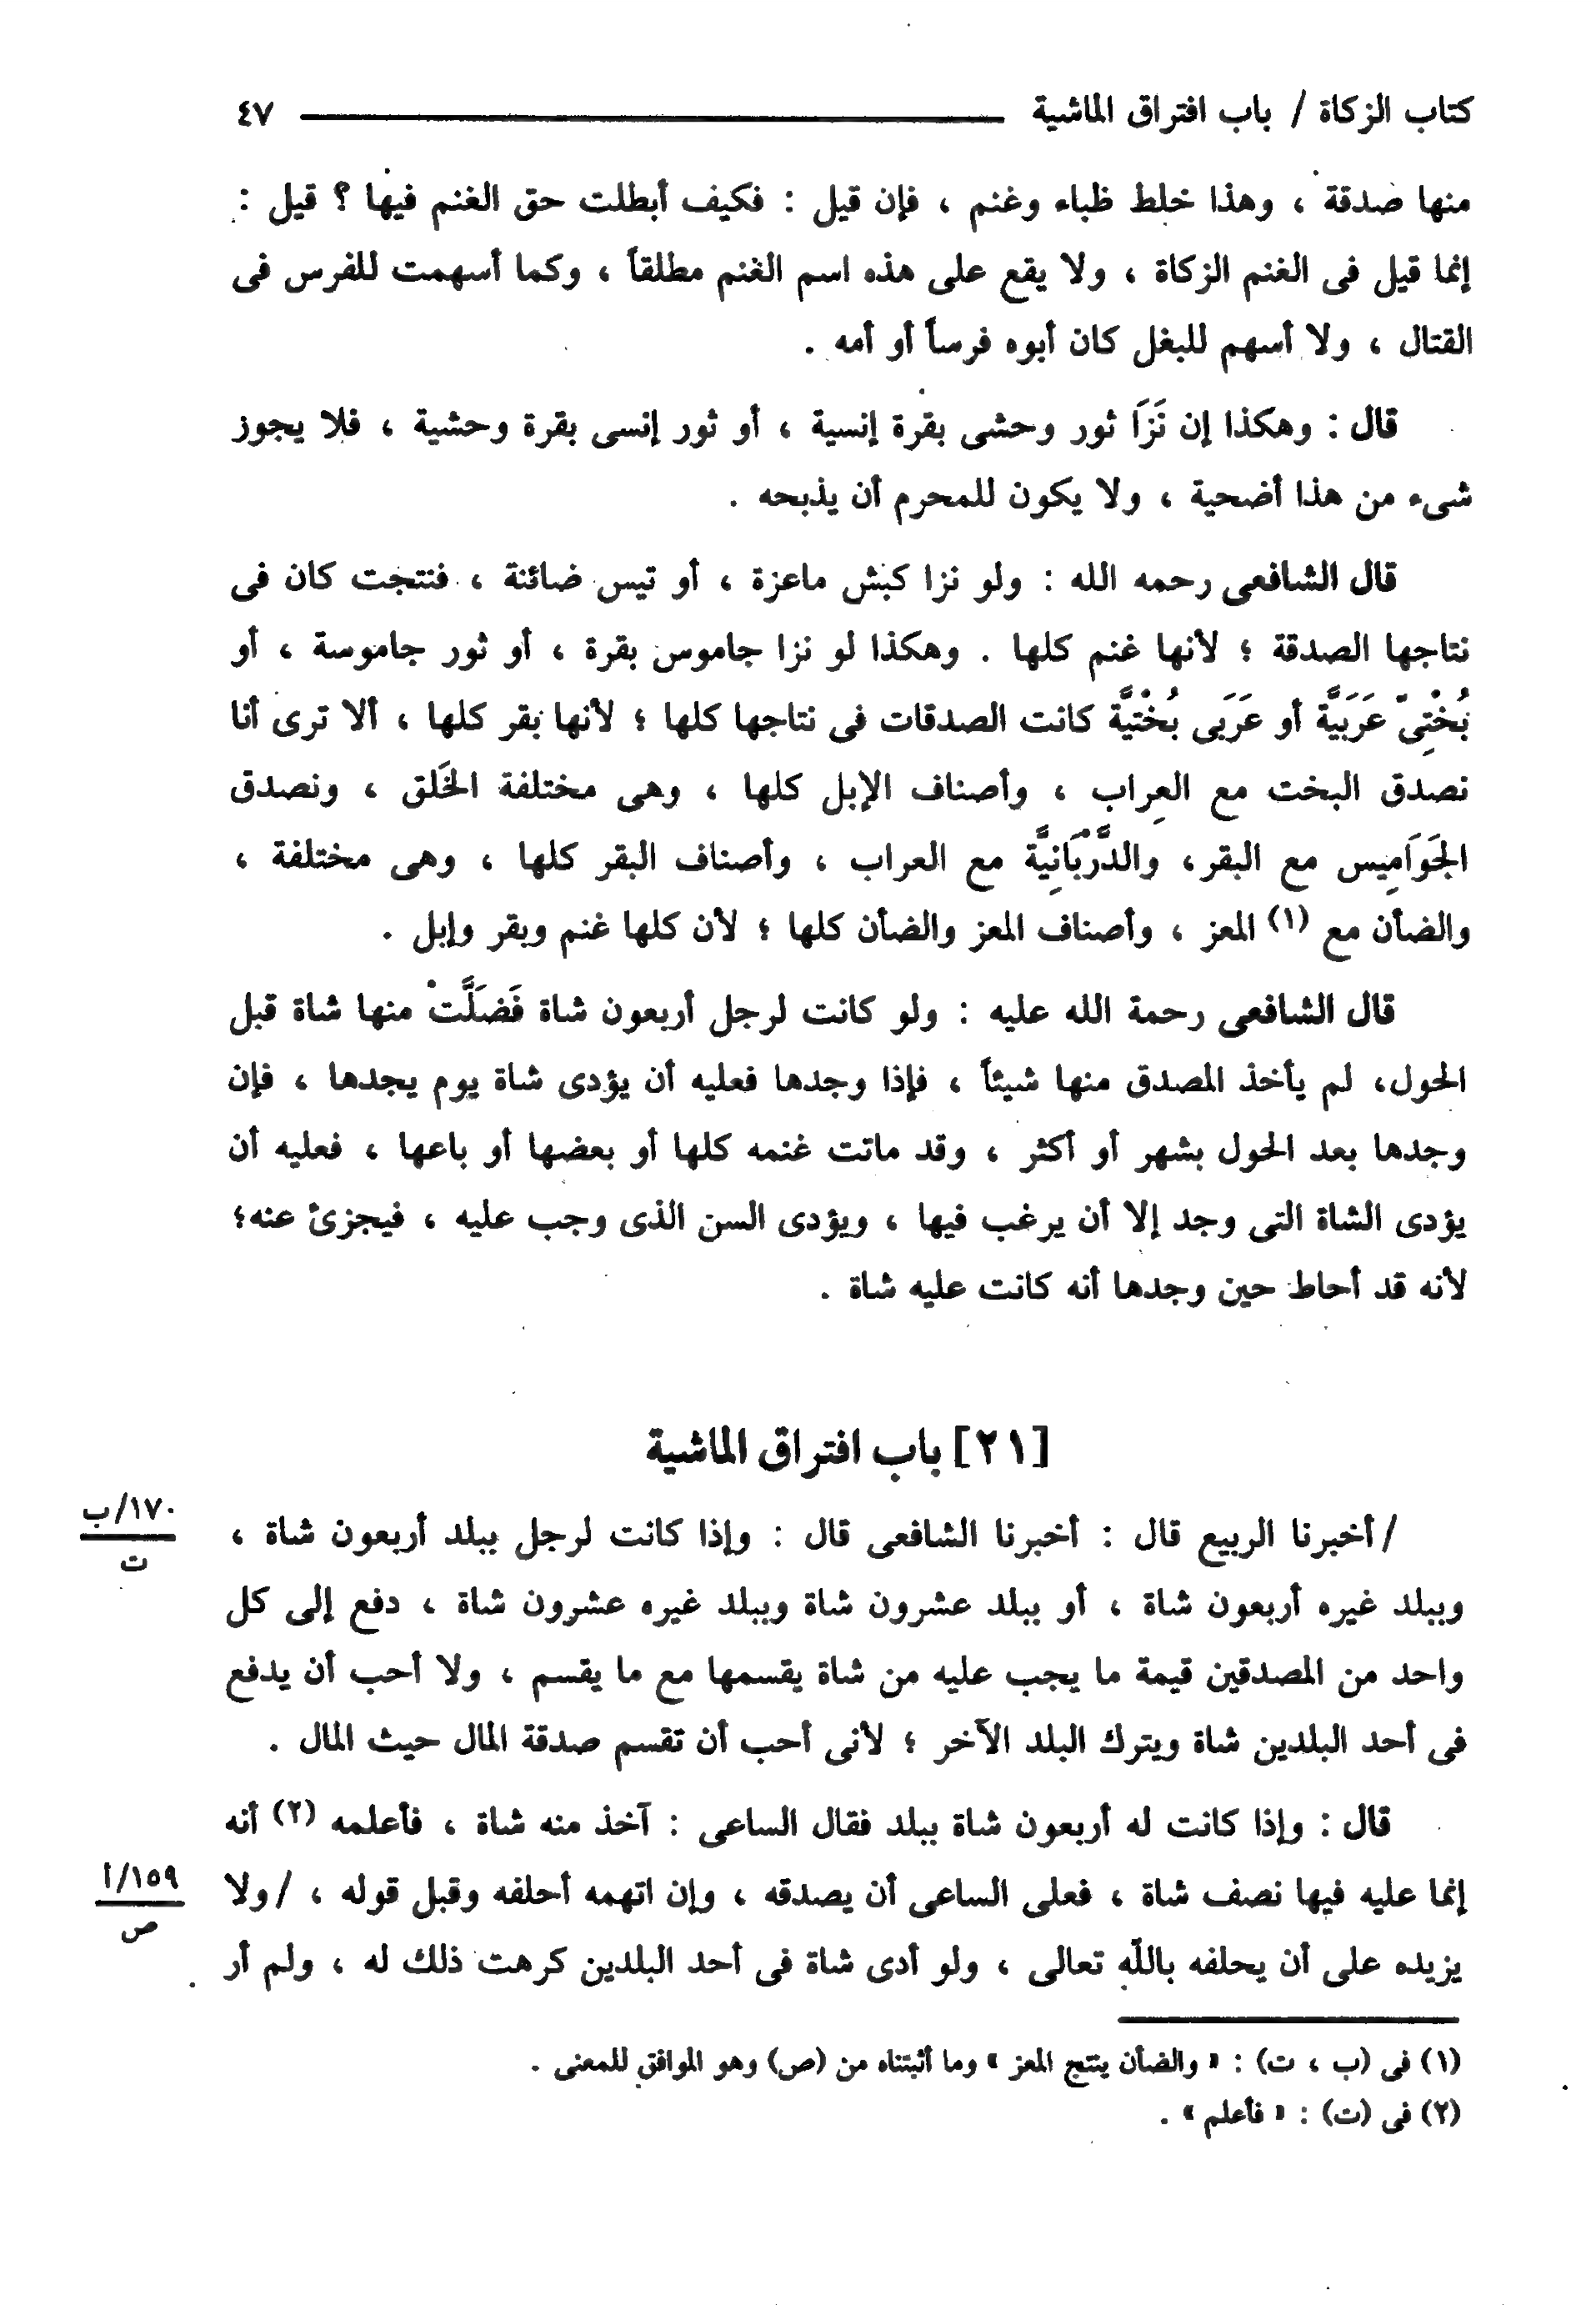 كتاب الزكاة / باب افتراق الماشية ٤٧
منها صدقة ، وهذا خلط ظباء وغنم ، فإن قيل : فكيف أبطلت حق الغنم فيها ؟ قيل :
إنما قيل فى الغنم الزكاة ، ولا يقع على هذه اسم الغنم مطلقاً ، وكما أسهمت للفرس فى
القتال ، ولا أسهم للبغل كان أبوه فرساً أو أمه .
قال : وهكذا إن نَزَا ثور وحشى بقرة إنسية ، أو ثور إنسى بقرة وحشية ، فلا يجوز
شىء من هذا أضحية ، ولا يكون للمحرم أن يذبحه .
قال الشافعى رحمه الله : ولو نزا كبش ماعزة ، أو تيس ضائنة ، فنتجت كان فى
نتاجها الصدقة ؛ لأنها غنم كلها . وهكذا لو نزا جاموس بقرة ، أو ثور جاموسة ، أو
بُخْتِىّ عَرَبَيَّة أو عَرَبَى بُخْتيَّة كانت الصدقات فى نتاجها كلها ؛ لأنها بقر كلها ، ألا ترى أنا
نصدق البخت مع العِراب ، وأصناف الإبل كلها ، وهى مختلفة الخَلق ، ونصدق
الجَوَامِيس مع البقر، والدَّرْبَانِيَّة مع العراب ، وأصناف البقر كلها ، وهى مختلفة ،
والضأن مع (١) المعز ، وأصناف المعز والضأن كلها ؛ لأن كلها غنم وبقر وإبل .
قال الشافعى رحمة الله عليه : ولو كانت لرجل أربعون شاة فَضَلَّتْ منها شاة قبل
الحول، لم يأخذ المصدق منها شيئاً ، فإذا وجدها فعليه أن يؤدى شاة يوم يجدها ، فإن
وجدها بعد الحول بشهر أو أكثر ، وقد ماتت غنمه كلها أو بعضها أو باعها ، فعليه أن
يؤدى الشاة التى وجد إلا أن يرغب فيها ، ويؤدى السن الذى وجب عليه ، فيجزئ عنه؛
لأنه قد أحاط حين وجدها أنه كانت عليه شاة .
[٢١] باب افتراق الماشية
/ أخبرنا الربيع قال : أخبرنا الشافعى قال : وإذا كانت لرجل ببلد أربعون شاة ،
١٧٠/ب
ت
وببلد غيره أربعون شاة ، أو ببلد عشرون شاة وببلد غيره عشرون شاة ، دفع إلى كل
واحد من المصدقين قيمة ما يجب عليه من شاة يقسمها مع ما يقسم ، ولا أحب أن يدفع
فى أحد البلدين شاة ويترك البلد الآخر ؛ لأنى أحب أن تقسم صدقة المال حيث المال .
قال : وإذا كانت له أربعون شاة ببلد فقال الساعى : آخذ منه شاة ، فأعلمه (٢) أنه
إنما عليه فيها نصف شاة ، فعلى الساعى أن يصدقه ، وإن اتهمه أحلفه وقبل قوله ، / ولا
١٥٩/أ
ص
يزيده على أن يحلفه بالله تعالى ، ولو أدى شاة فى أحد البلدين كرهت ذلك له ، ولم أر
(١) فى (ب ، ت) : « والضأن ينتج المعز » وما أثبتناه من (ص) وهو الموافق للمعنى .
(٢) فى (ت) : « فأعلم » .